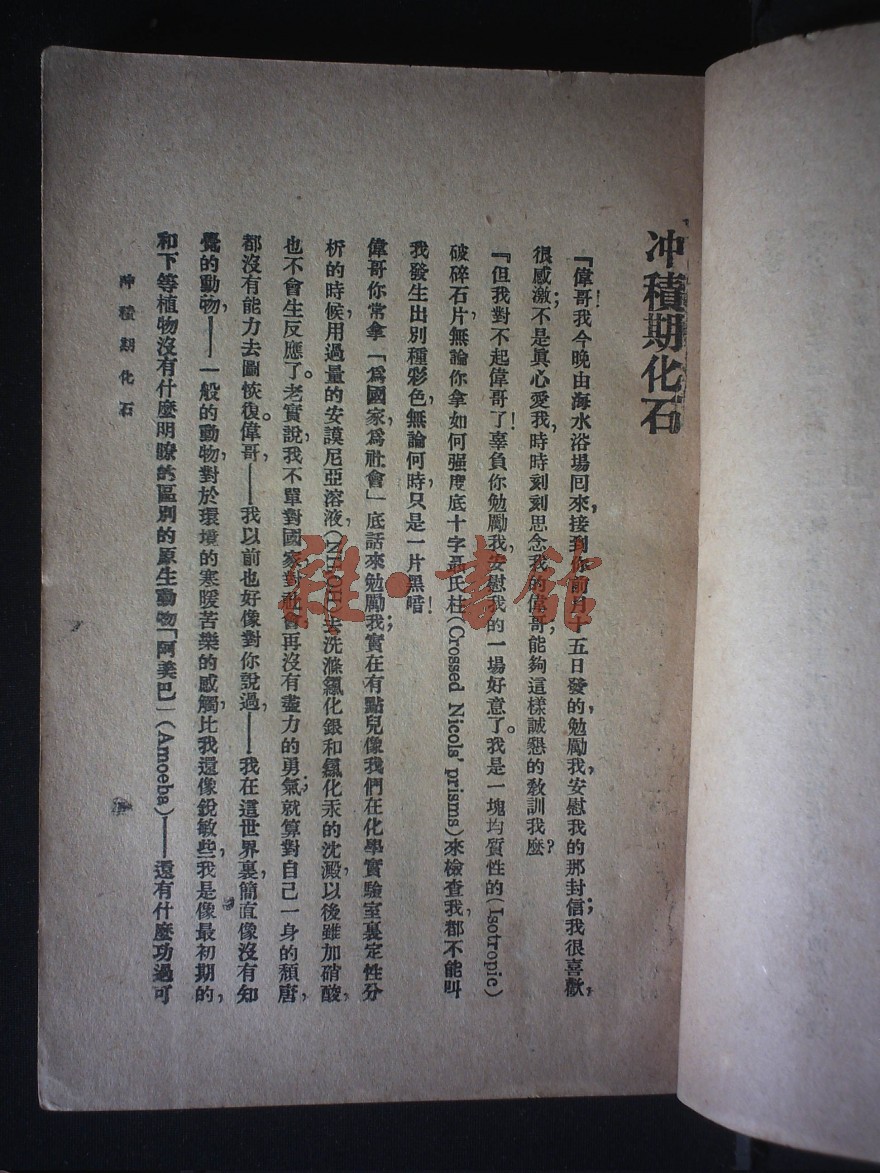 冲積期化石
「偉哥！我今晚由海水浴場回來，接到你前月十五日發的，勉勵我，安慰我的那封信；我很喜歡，
很感激；不是眞心愛我，時時刻刻思念我的偉哥，能夠這樣誠懇的敎訓我麼？
『但我對不起偉哥了！辜負你勉勵我，安慰我的一場好意了。我是一塊均質性的(Isotropic)
破碎石片，無論你拿如何强度底十字聶氏柱(Crossed Nicols' prisms)來檢查我，都不能叫
我發生出別種彩色，無論何時，只是一片黑暗！
偉哥，你常拿「爲國家，爲社會」底話來勉勵我；實在有點兒像我們在化學實驗室裏定性分
析的時候，用過量的安謨尼亞溶液，去洗滌氯化銀和氯化汞的沈澱，以後雖加硝酸，
也不會生反應了。老實說，我不單對國家，對社會，再沒有盡力的勇氣；就算對自己一身的頹唐，
都沒有能力去圖恢復。偉哥，——我以前也好像對你說過，——我在這世界裏，簡直像沒有知
覺的動物，——一般的動物，對於環境的寒暖苦樂的感觸，比我還像銳敏些，我是像最初期的，
和下等植物沒有什麼明瞭的區別的原生動物「阿美巴」(Amoeba)——還有什麼功過可
冲積期化石
雜·書館